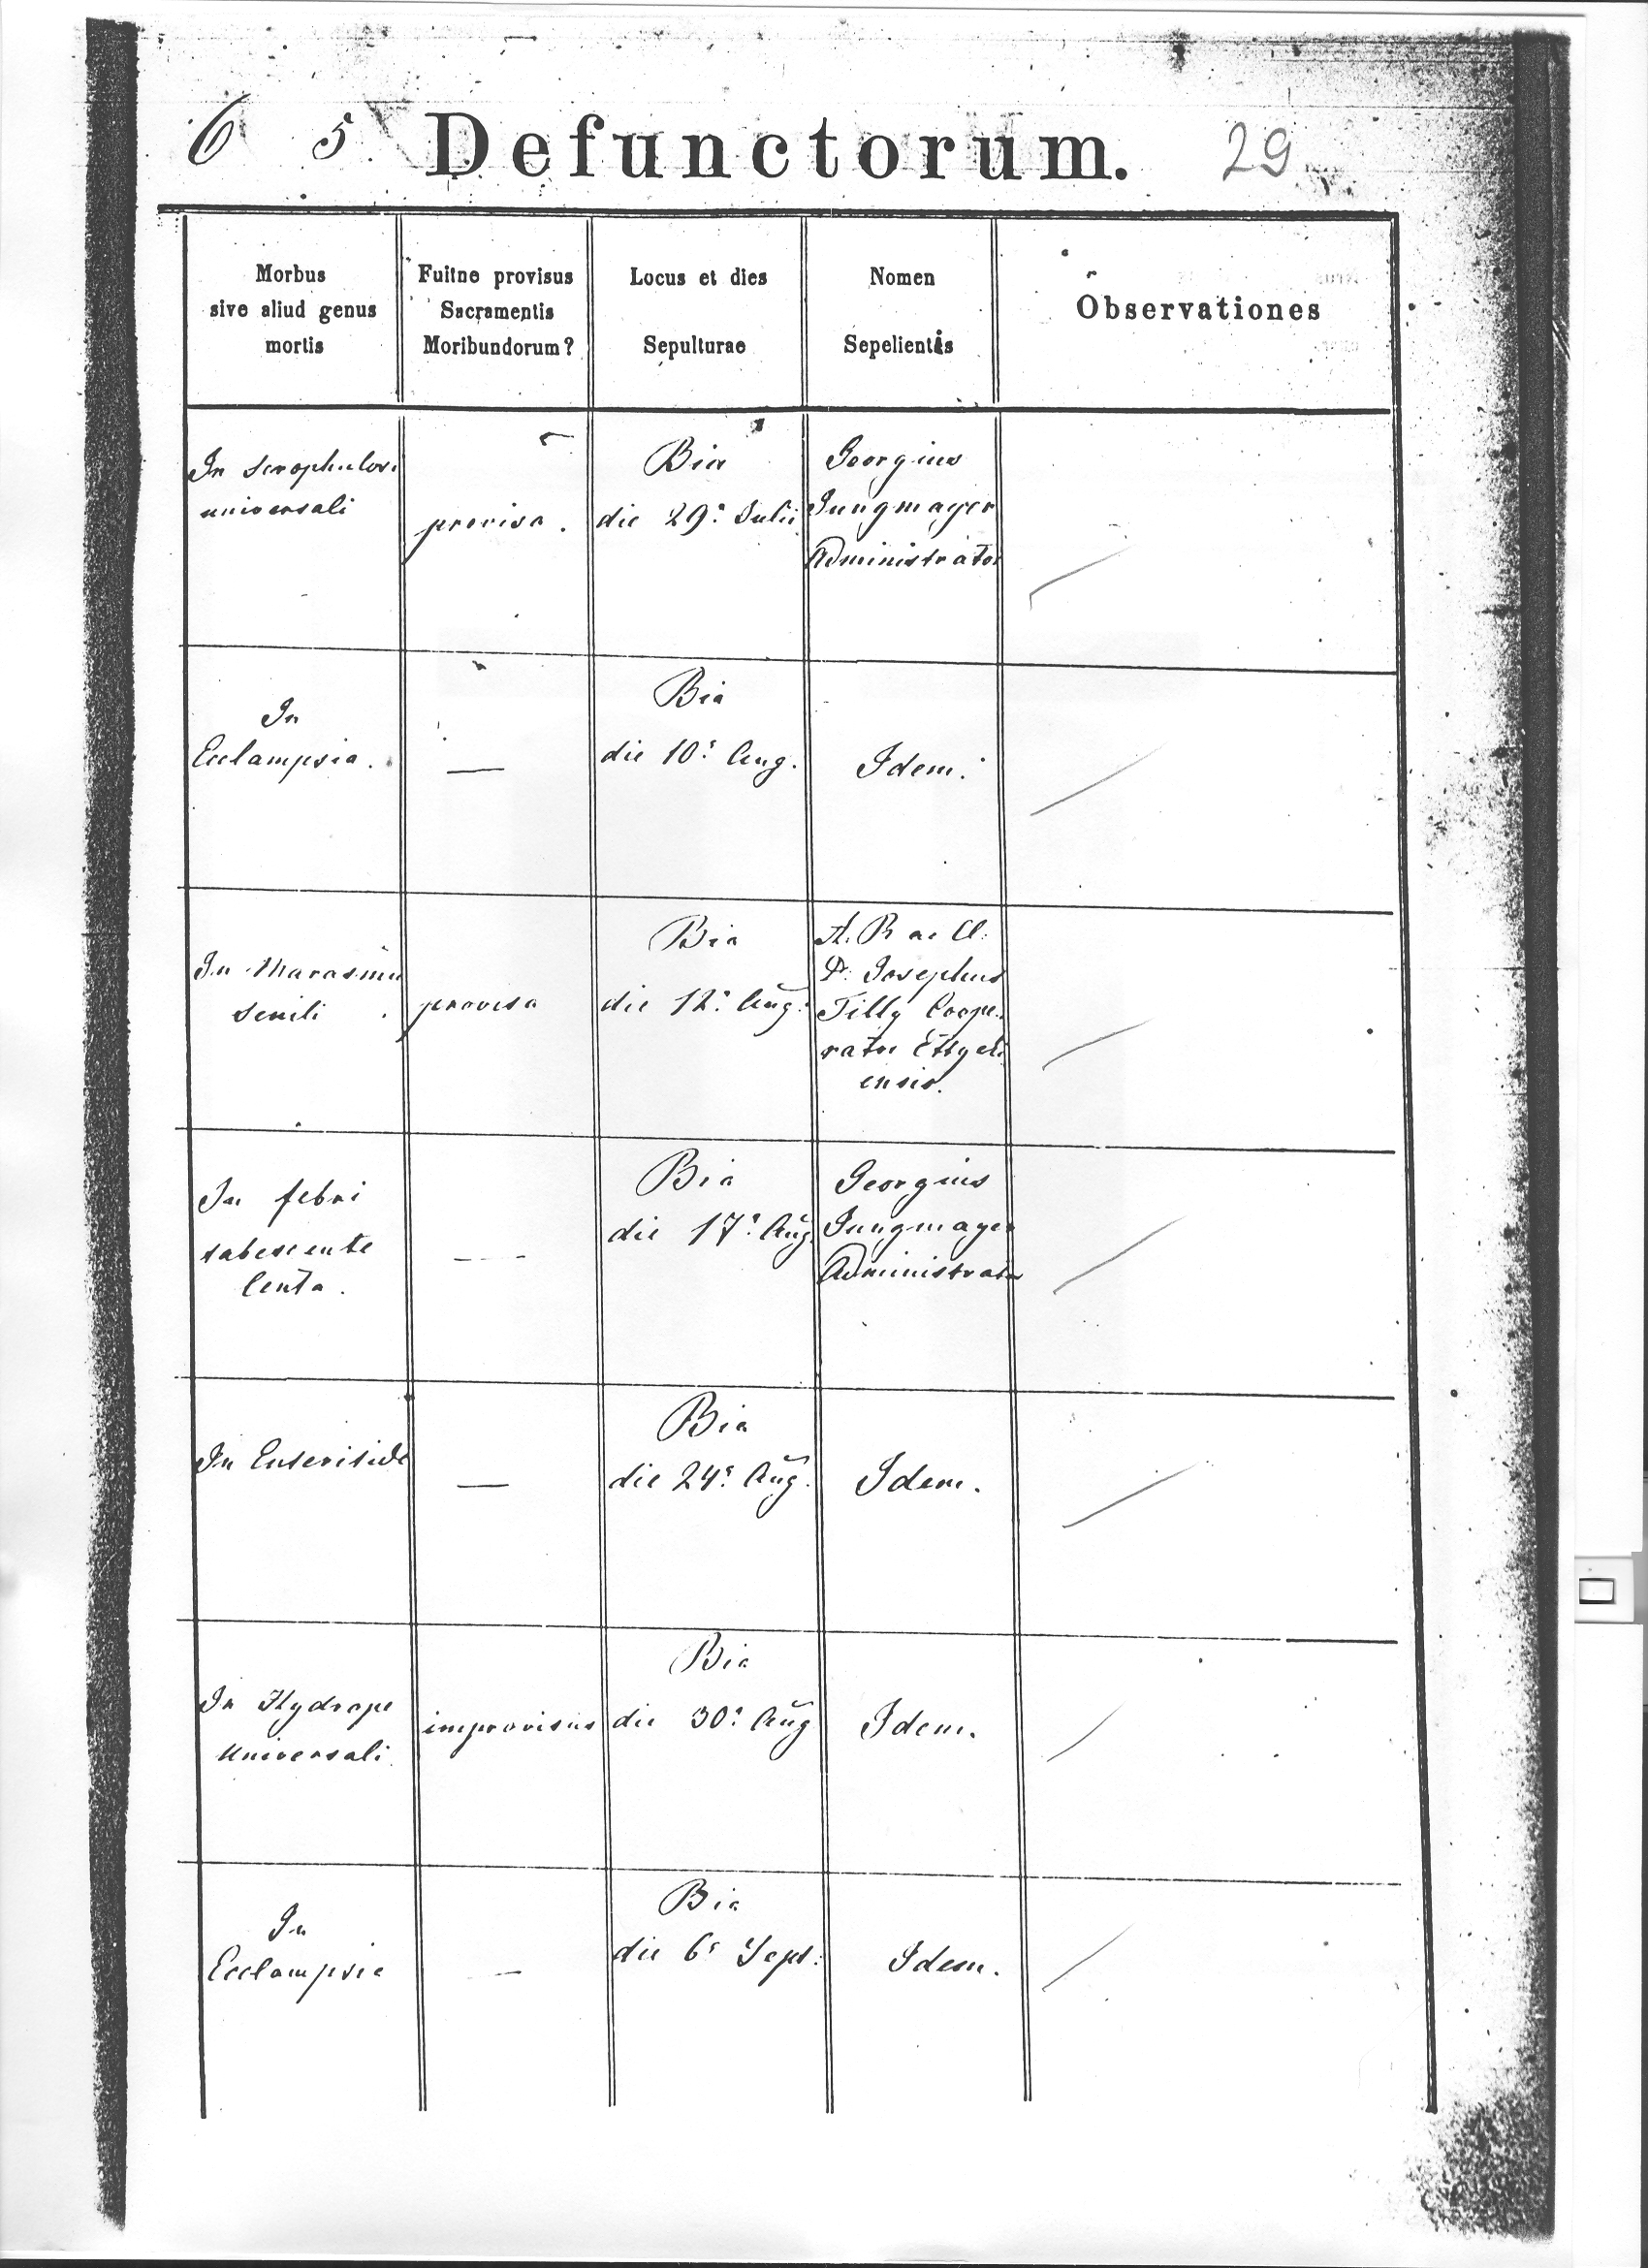 6 5 Defunctorum. 29
Morbus
sive aliud genus
mortis
Fuitne provisus
Sacramentis
Moribundorum?
Locus et dies
Sepulturae
Nomen
Sepelientis
Observationes
In Scrophulosi
universali
provisa.
Bia
die 29a Julii
Georgius
Jungmayer
Administrator
In
Ecclampsia.
—
Bia
die 10a Aug.
Idem.
In Marasmu
senili
provisa
Bia
die 12a Aug.
A. R. ac Cl.
D. Josephus
Tilly Coope-
rator
ensis.
In febri
tabescente
lenta.
—
Bia
die 17a Aug
Georgius
Jungmayer
Administrator
In Enteritide
—
Bia
die 24a Aug.
Idem.
In Hydrope
universali
improvisus
Bia
die 30a Aug
Idem.
In
Ecclampsia
—
Bia
die 6a Sept.
Idem.